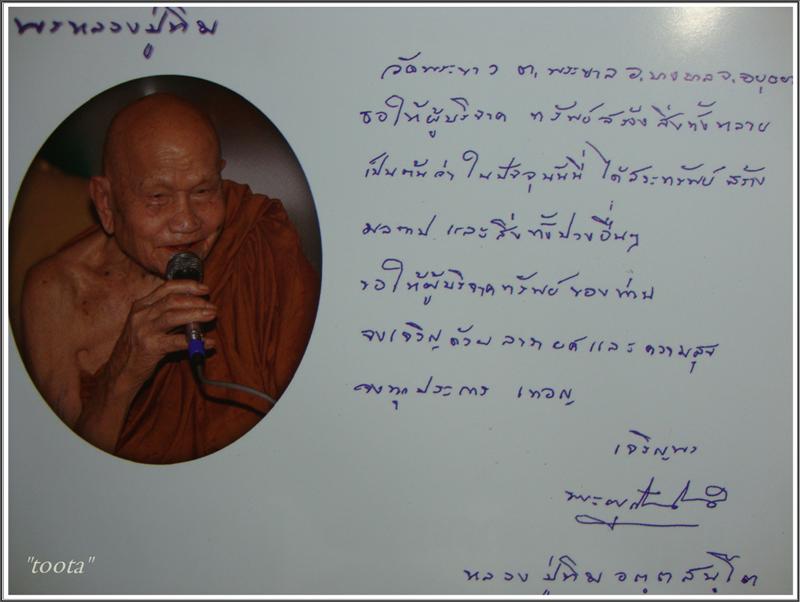 พรหลวงปู่ทิม
วัดพระขาว ต.พระขาว อ.บางบาล จ.อยุธยา
ขอให้ผู้บริจาค ทรัพย์สร้างสิ่งทั้งหลาย
เป็นต้นว่า ในปัจจุบันนี้ ได้สระทรัพย์ สร้าง
และสิ่งทั้งปวงอื่นๆ
ขอให้ผู้บริจาคทรัพย์ของท่าน
จงเจริญด้วย ลาภยศและความสุข
จงทุกประการ เทอญ
เจริญพร
หลวงปู่ทิม อตฺตสนฺโต
"toota"